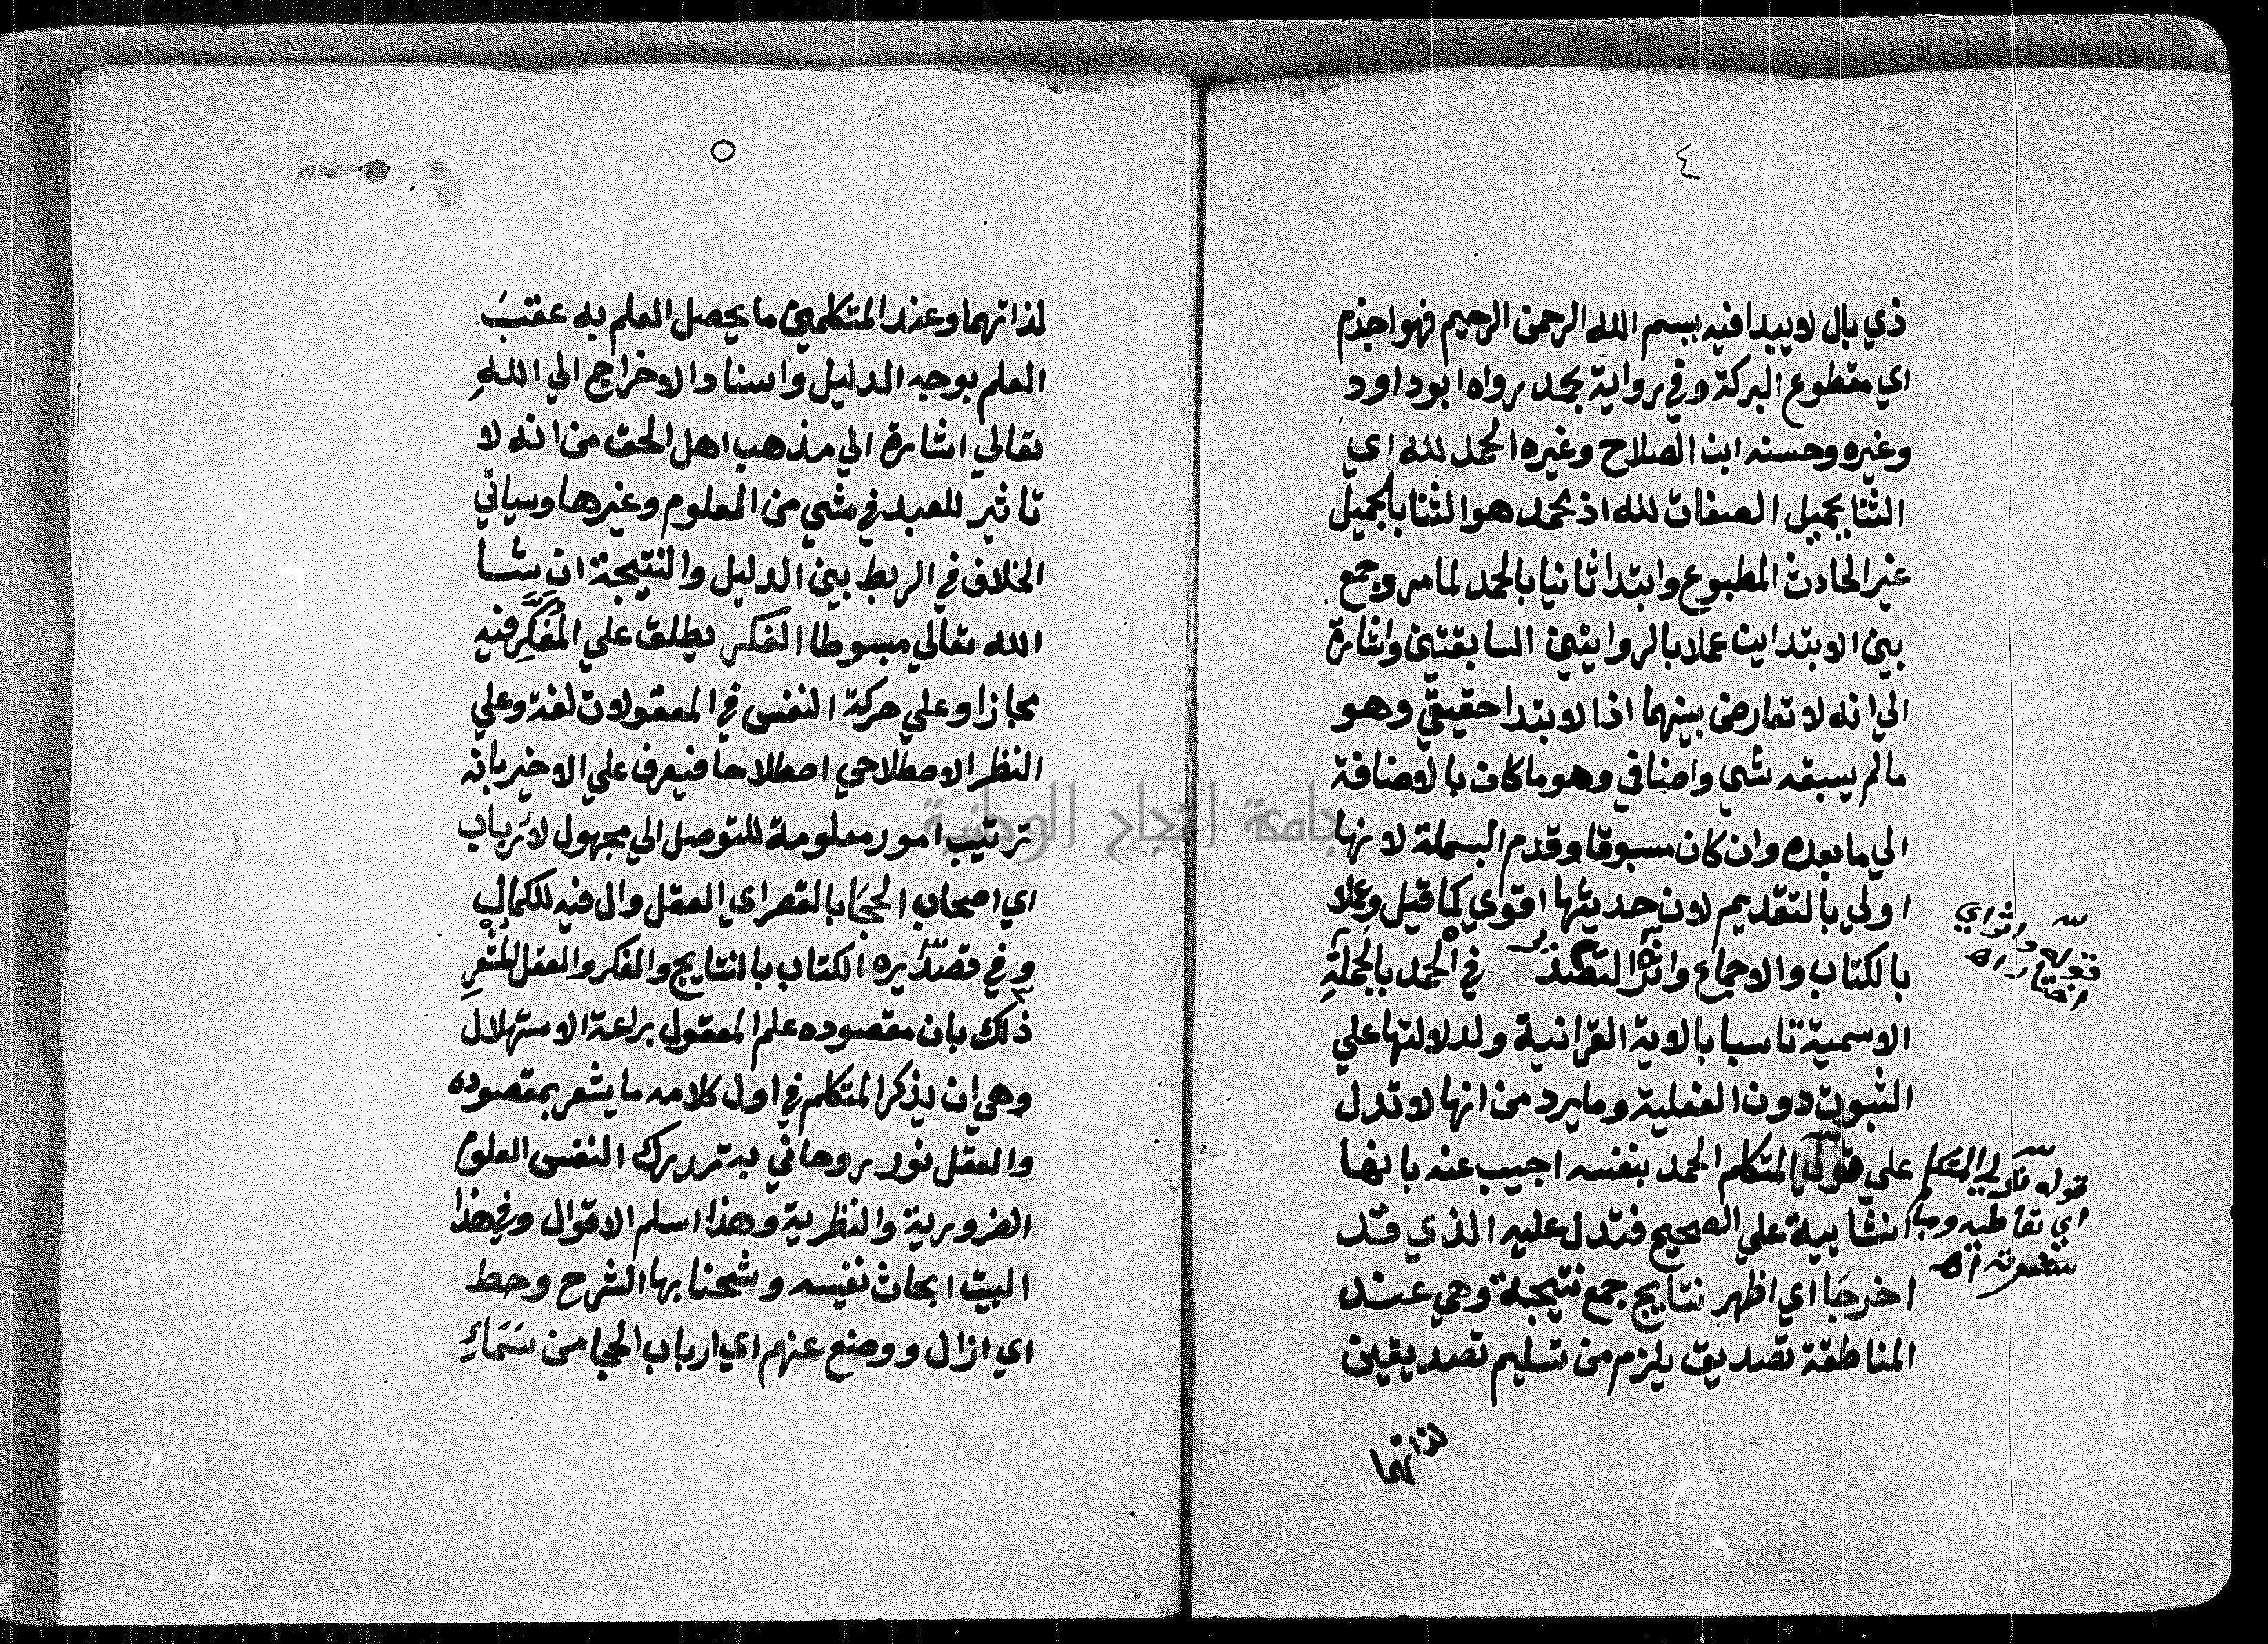 ٤
ذي بال لا يبدا فيه ببسم الله الرحمن الرحيم فهو اجذم
اي مقطوع البركة وفي رواية بحمد رواه ابو داود
وغيره وحسنه ابن الصلاح وغيره الحمد لله اي
الثنا بجميل الصفات لله اذ الحمد هو الثنا بالجميل
غير الحادث المطبوع وابتدا ثانيا بالحمد لما مر وجمع
بين الابتداين عملا بالروايتين السابقتين واشارة
الي انه لا تعارض بينهما اذ الابتدا حقيقي وهو
مالم يسبقه شي واضافي وهو ما كان بالاضافة
الي ما بعده وان كان مسبوقا وقدم البسملة لانها
اولي بالتقديم لان حديثها اقوي كما قيل وعملا
بالكتاب والاجماع واثر في الحمد بالجملة
الاسمية تاسيا بالاية القرانية ولدلالتها علي
الثبوت دون الفعلية وما يرد من انها لا تدل
علي قول المتكلم الحمد بنفسه اجيب عنه بانها
انشايية علي الصحيح فتدل عليه الذي قد
اخرجا اي اظهر نتايج جمع نتيجة وهي عند
المناطقة تصديق يلزم من تسليم تصديقين
لذاتهما
قوله واثر اي
اختار اه
قوله قول المتكلم
اي
٥
لذاتهما وعند المتكلمين ما يحصل العلم به عقب
العلم بوجه الدليل واسناد الاخراج الي الله
تعالي اشارة الي مذهب اهل الحق من انه لا
تاثير للعبد في شي من العلوم وغيرها وسياتي
الخلاف في الربط بين الدليل والنتيجة ان شا
الله تعالي مبسوطا الفكر يطلق علي المفكر فيه
مجازا وعلي حركة النفس في المعقولات لغة وعلي
النظر الاصطلاحي اصطلاحا فيعرف علي الاخير بانه
ترتيب امور معلومة للتوصل الي مجهول لارباب
اي اصحاب الحجا بالقصر اي العقل وال فيه للكمال
وفي تصديره الكتاب بالنتايج والفكر والعقل المشعر
ذلك بان مقصوده علم المعقول براعة الاستهلال
وهي ان يذكر المتكلم في اول كلامه ما يشعر بمقصوده
والعقل نور روحاني به تدرك النفس العلوم
الضرورية والنظرية وهذا اسلم الاقوال وفي هذا
البيت ابحاث نفيسه وشحنا بها الشرح وحط
اي ازال ووضع عنهم اي ارباب الحجا من سماء
جامعة النجاح الوطنية